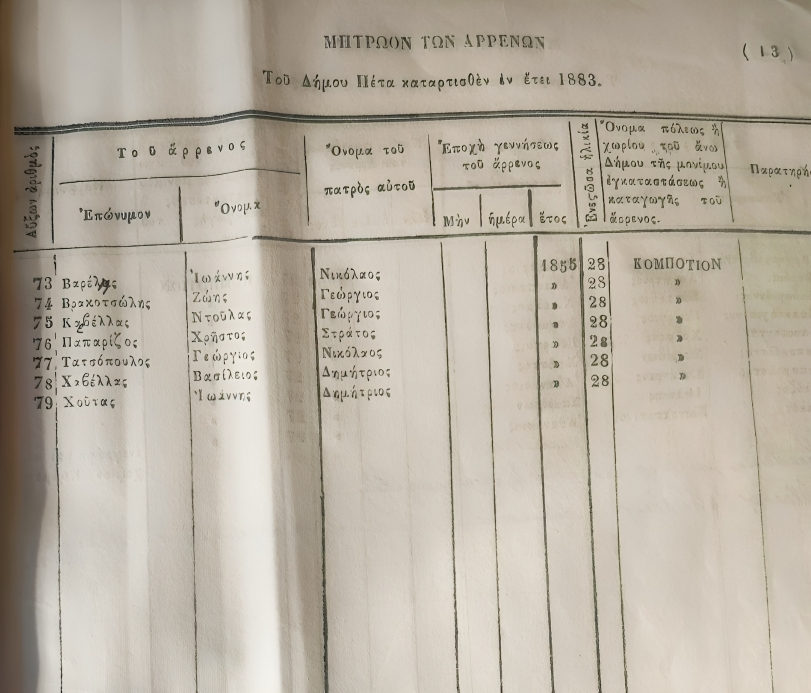 ΜΗΤΡΩΟΝ ΤΩΝ ΑΡΡΕΝΩΝ
( 13 )
Τοῦ Δήμου Πέτα καταρτισθὲν ἐν ἔτει 1883.
Αὔξων ἀριθμὸς
Τοῦ ἄρρενος
Ἐπώνυμον
Ὄνομα
Ὄνομα τοῦ
πατρὸς αὐτοῦ
Ἐποχὴ γεννήσεως
τοῦ ἄρρενος
Μὴν ἡμέρα ἔτος
Ἐνεστῶσα ἡλικία
Ὄνομα πόλεως ἢ
χωρίου τοῦ ἄνω
Δήμου τῆς μονίμου
ἐγκαταστάσεως ἢ
καταγωγῆς τοῦ
ἄρρενος.
73 Βαρέλας Ἰωάννης Νικόλαος 1855 28 ΚΟΜΠΟΤΙΟΝ
74 Βρακοτσώλης Ζώης Γεώργιος » 28 »
75 Καβέλλας Ντούλας Γεώργιος » 28 »
76 Παπαρίζος Χρῆστος Στράτος » 28 »
77 Τατσόπουλος Γεώργιος Νικόλαος » 28 »
78 Χαβέλλας Βασίλειος Δημήτριος » 28 »
79 Χοῦτας Ἰωάννης Δημήτριος » 28 »